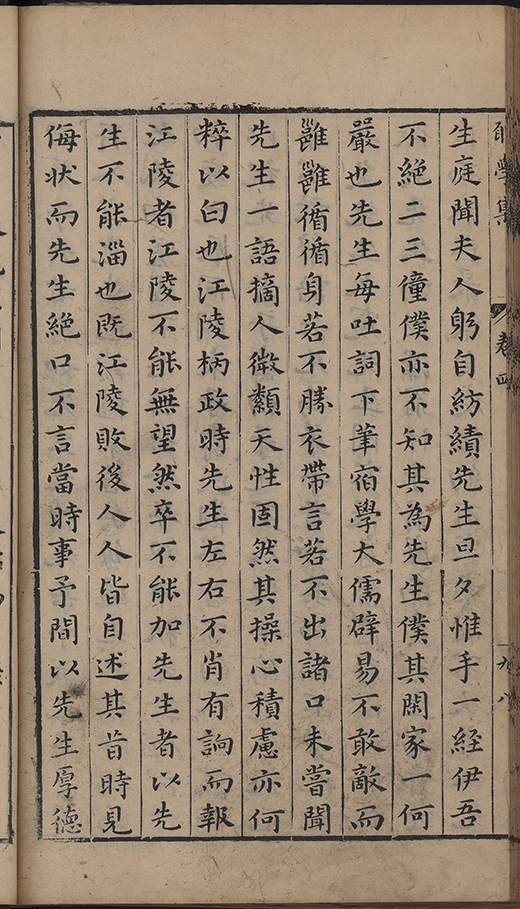 卷四
生庭聞夫人躬自紡績先生旦夕惟手一經伊吾
不絕二三僮僕亦不知其為先生僕其閑家一何
嚴也先生每吐詞下筆宿學大儒辟易不敢敵而
雝雝循循身若不勝衣帶言若不出諸口未嘗聞
先生一語摘人微纇天性固然其操心積慮亦何
粹以白也江陵柄政時先生左右不肖有訽而報
江陵者江陵不能無望然卒不能加先生者以先
生不能淄也既江陵敗後人人皆自述其昔時見
侮状而先生絕口不言當時事予間以先生厚德